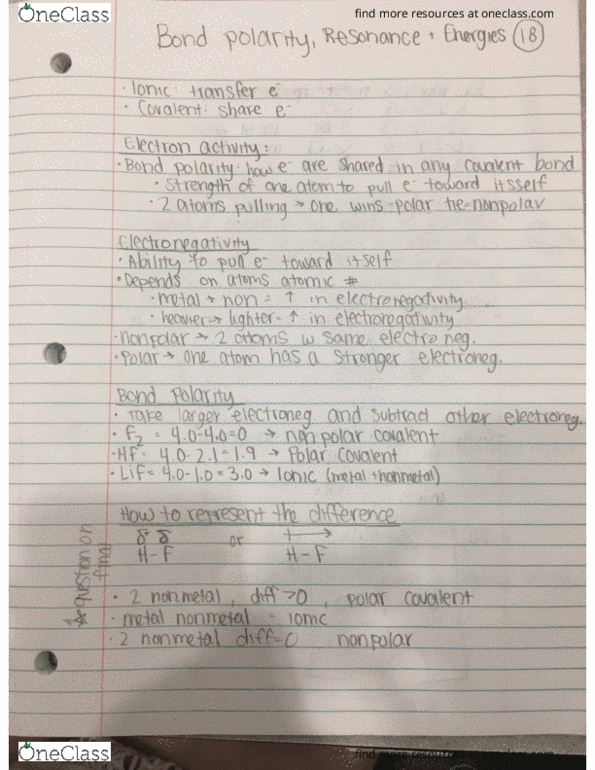 OneClass
find more resources at oneclass.com
Bond polarity, Resonance + Energies 18
· Ionic: transfer e⁻
· Covalent: share e⁻
Electron activity:
· Bond polarity: how e⁻ are shared in any covalent bond
· Strength of one atom to pull e⁻ toward itsself
· 2 atoms pulling → one wins-polar tie=nonpolar
Electronegativity
· Ability to pull e⁻ toward itself
· Depends on atoms atomic #
· metal → non = ↑ in electronegativity
· heavier → lighter = ↑ in electronegativity
· nonpolar → 2 atoms w same electro neg.
· Polar → one atom has a stronger electroneg.
Bond Polarity
· Take larger electroneg and subtract other electroneg.
· F₂ = 4.0-4.0=0 → non polar covalent
· HF = 4.0-2.1=1.9 → Polar Covalent
· LiF = 4.0-1.0=3.0 → Ionic (metal + nonmetal)
How to represent the difference
δ⁺ δ or
H-F H-F
question on final
· 2 nonmetal, diff >0, polar covalent
· metal nonmetal = ionic
· 2 nonmetal diff=0 nonpolar
OneClass
find more resources at oneclass.com